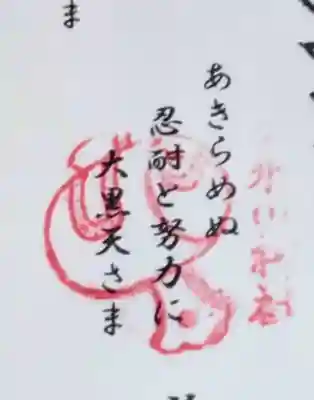 ま
あきらめぬ
忍耐と努力に
大黒天さま